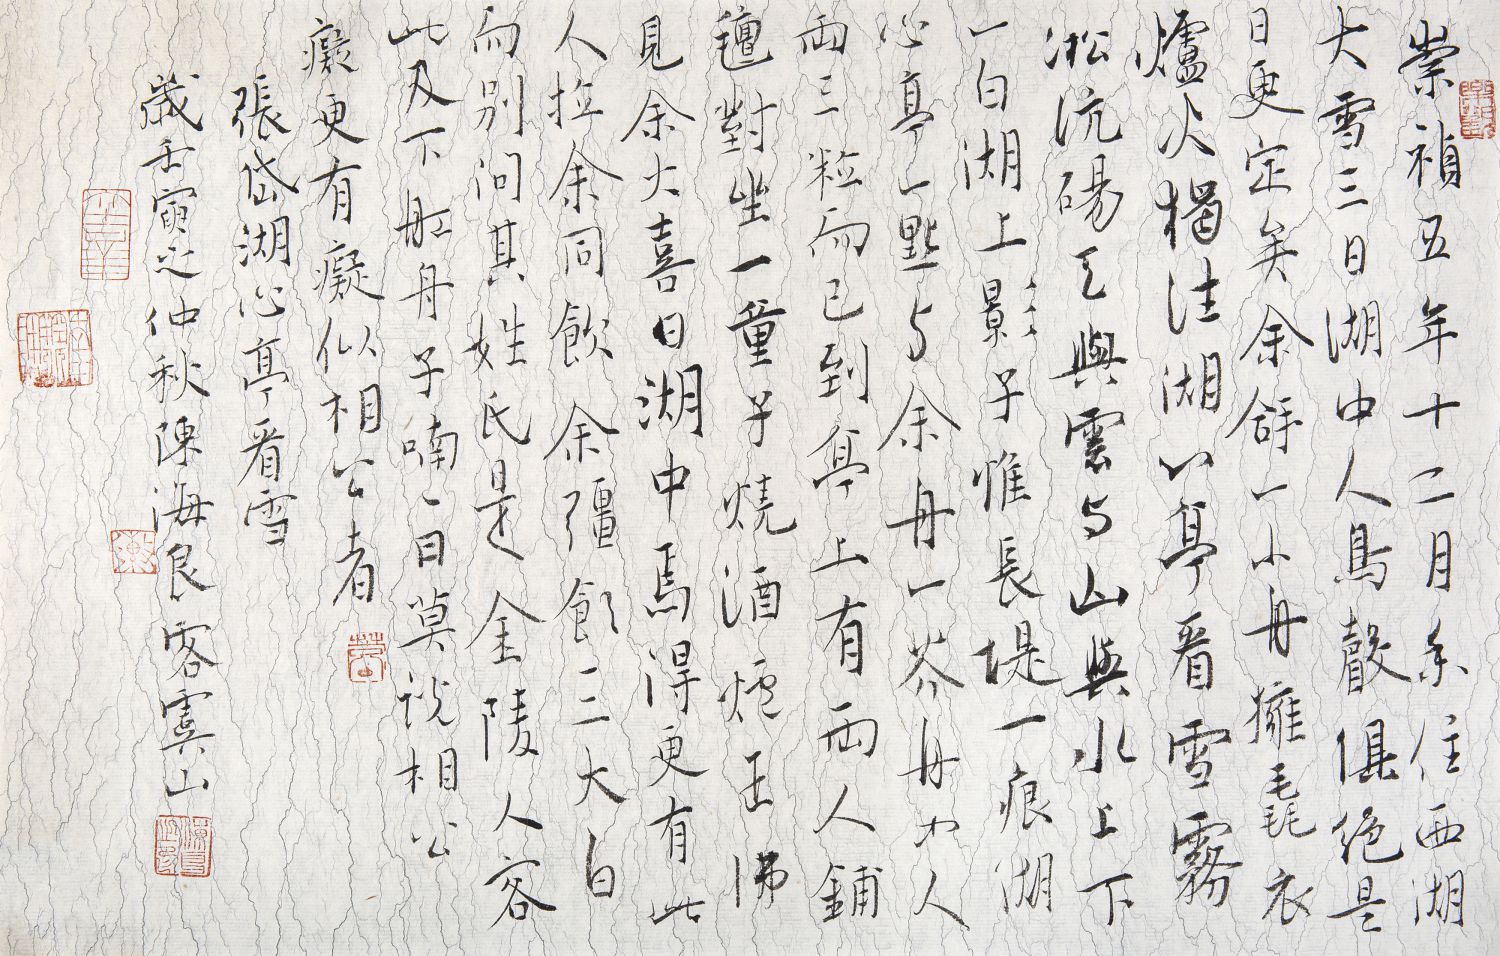 崇禎五年十二月余住西湖
大雪三日湖中人鳥聲俱絕是
日更定矣余舒一小舟擁毳衣
爐火獨往湖心亭看雪霧
淞沆碭天與雲与山與水上下
一白湖上影子惟長堤一痕湖
心亭一點与余舟一芥舟中人
兩三粒而已到亭上有兩人鋪
氈對坐一童子燒酒爐正沸
見余大喜曰湖中焉得更有此
人拉余同飲余彊飲三大白
而別問其姓氏是金陵人客
此及下船舟子喃〻曰莫說相公
癡更有癡似相公者
張岱湖心亭看雪
歲壬寅之仲秋陳海良客虞山